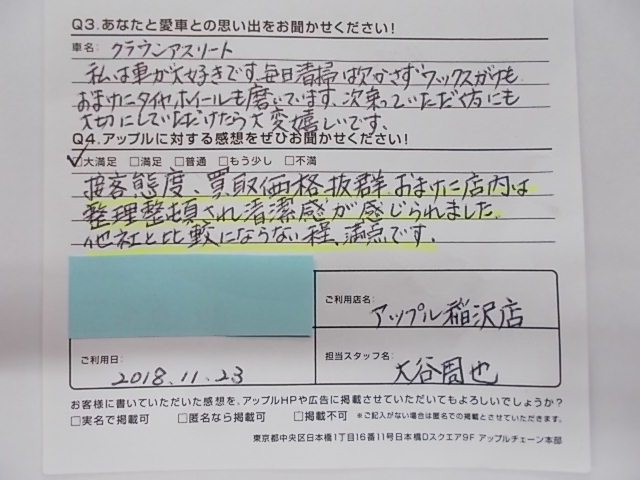 Q3.あなたと愛車との思い出をお聞かせください!
車名: クラウンアスリート
私は車が大好きです。毎日清掃は欠かさずワックスがけも
おまけにタイヤホイールも磨いています、次乗っていただく方にも
大切にしていただけたら大変嬉しいです。
Q4.アップルに対する感想をぜひお聞かせください!
☑大満足 □満足 □普通 □もう少し □不満
接客態度、買取価格抜群、おまけに店内は
整理整頓され清潔感が感じられました。
他社と比較にならない程、満点です。
ご利用店名: アップル稲沢店
ご利用日: 2018.11.23
担当スタッフ名: 大谷周也
お客様に書いていただいた感想を、アップルHPや広告に掲載させていただいてもよろしいでしょうか?
□実名で掲載可 □匿名なら掲載可 □掲載不可 ※ご記入がない場合は匿名での掲載とさせていただきます。
東京都中央区日本橋1丁目16番11号日本橋Dスクエア9F アップルチェーン本部